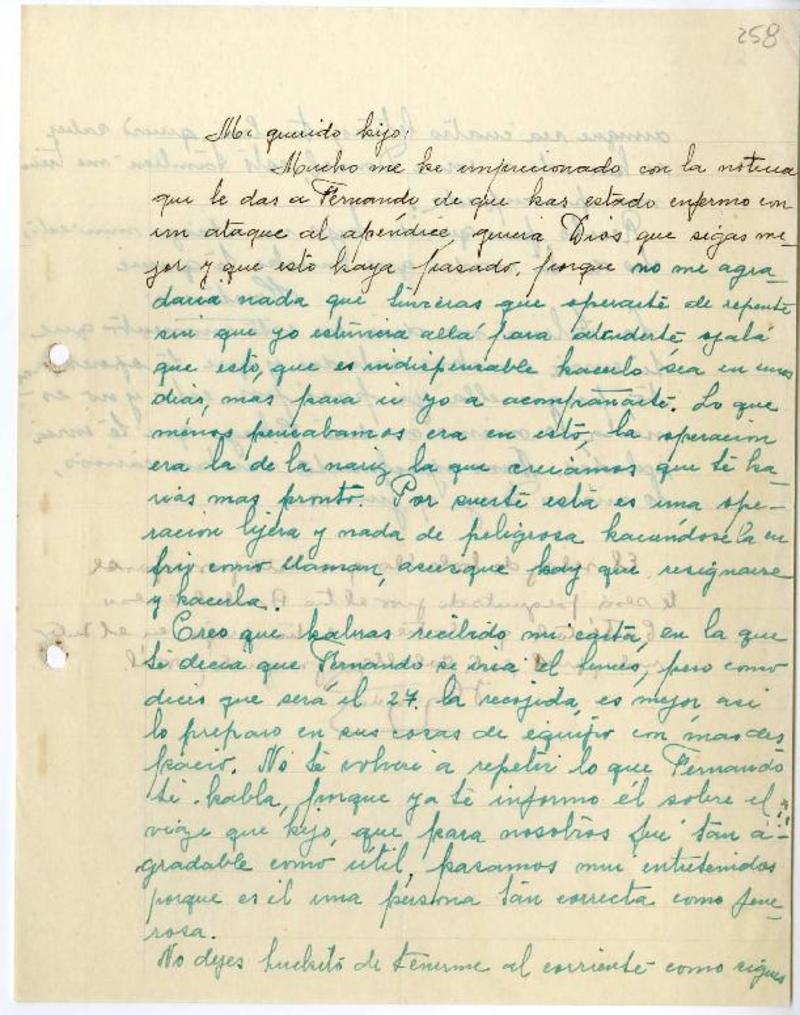 258
Mi querido hijo:
Mucho me he impresionado con la noticia
que le das a Fernando de que has estado enfermo con
un ataque al apéndice, quiera Dios que sigas me-
jor y que esto haya pasado, porque no me agra-
daria nada que tuvieras que operarte de repente
sin que yo estuviera allá para atenderte, ojalá
que esto, que es indispensable hacerlo sea en unos
dias, mas para ir yo a acompañarte. Lo que
menos pensabamos era en esto, la operación
era la de la nariz la que creiamos que te ha-
rias mas pronto. Por suerte esta es una ope-
racion lijera y nada de peligrosa haciendosela en
frio como llaman, asi es que hay que resignarse
y hacerla.
Creo que habras recibido mi carta, en la que
te decia que Fernando se iria el lunes, pero como
dices que será el 27 la recojida, es mejor asi
lo preparo en sus cosas de equipo con mas des
pacio. No te volveré a repetir lo que Fernando
te habla, porque ya te informo él sobre el
viaje que hijo, que para nosotros fué tan a-
gradable como útil, pasamos mui entretenidos
porque es él una persona tan correcta como jene-
rosa.
No dejes Luchito de tenerme al corriente como sigues